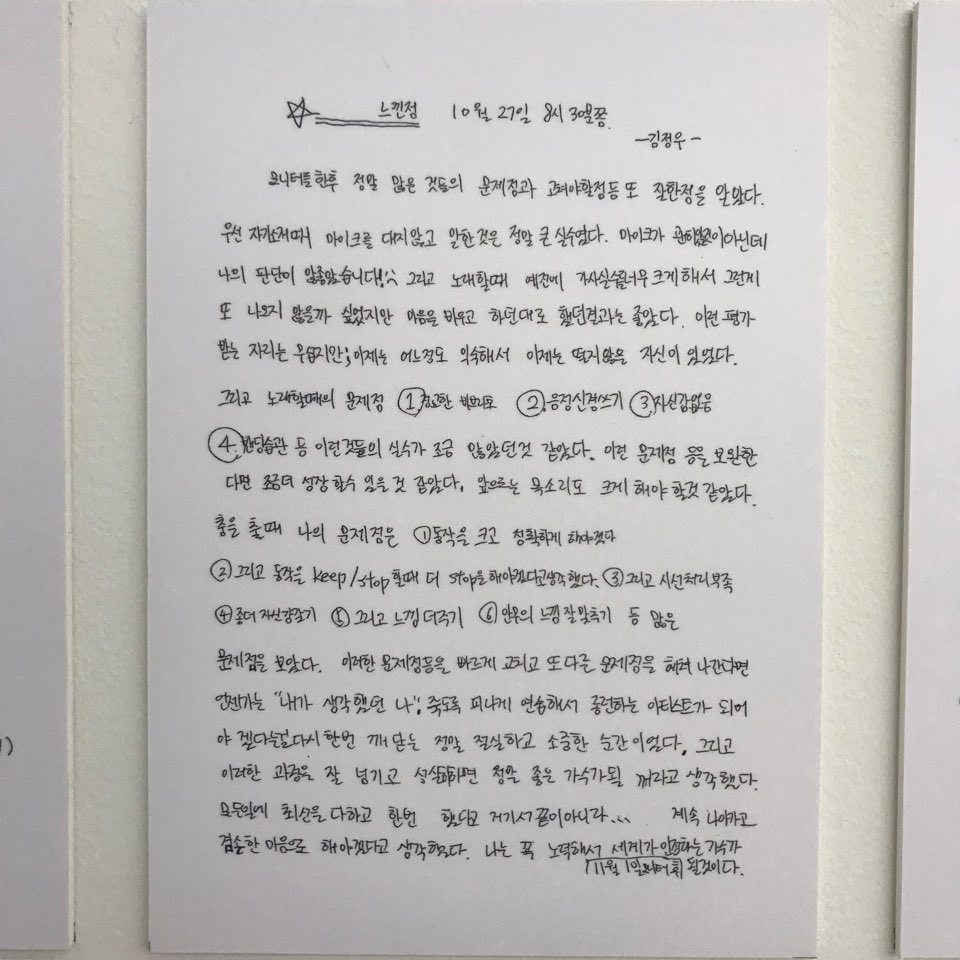 느낀점 10월 27일 8시 30분쯤
-김정우-
모니터를한후 정말 많은 것들의 문제점과 고쳐야할점등 또 잘한점을 알았다.
우선 자기소개때 마이크를 대지않고 말한것은 정말 큰 실수였다. 마이크가 아닌데
나의 판단이 안좋았습니다! 그리고 노래할때 예전에 가사실수를너무 크게해서 그런게
또 나오지 않을까 싶었지만 마음을 비우고 하던대로 했던결과는 좋았다. 이런 평가
받는 자리는 우습지만; 이제는 어느정도 익숙해서 이제는 떨지않을 자신이 있었다.
그리고 노래할때의 문제점 ① 비브라토 ② 음정신경쓰기 ③ 자신감없음
④ 밴딩습관 등 이런것들의 실수가 조금 않았던것 같았다. 이런 문제점 등을 보완한
다면 조금더 성장 할수 있을것 같았다. 앞으로는 목소리도 크게 해야 할것 같았다.
춤을 출때 나의 문제점은 ① 동작을 크고 정확하게 해야겠다
② 그리고 동작을 keep/stop 할때 더 stop을해야겠다고생각했다. ③ 그리고 시선처리부족
④ 좀더 자신감갖기 ⑤ 그리고 느낌더주기 ⑥ 안무의 느낌 잘맞추기 등 많은
문제점을 보았다. 이러한 문제점등을 빠르게 고치고 또다른 문제점을 헤쳐 나간다면
언젠가는 "내가 생각했던 나", 죽도록 피나게 연습해서 훌련하는 아티스트가 되어
야 겠다는걸다시 한번 깨닫는 정말 절실하고 소중한 순간이었다. 그리고
이러한 과정을 잘 넘기고 성실히하면 정말 좋은 가수가될 꺼라고 생각했다.
모든일에 최선을 다하고 한번 했다고 거기서끝이아니라... 계속 나아가고
겸손한 마음으로 해야겠다고 생각했다. 나는 꼭 노력해서 세계가 인정하는 가수가
11월 1일모니터회 될것이다.